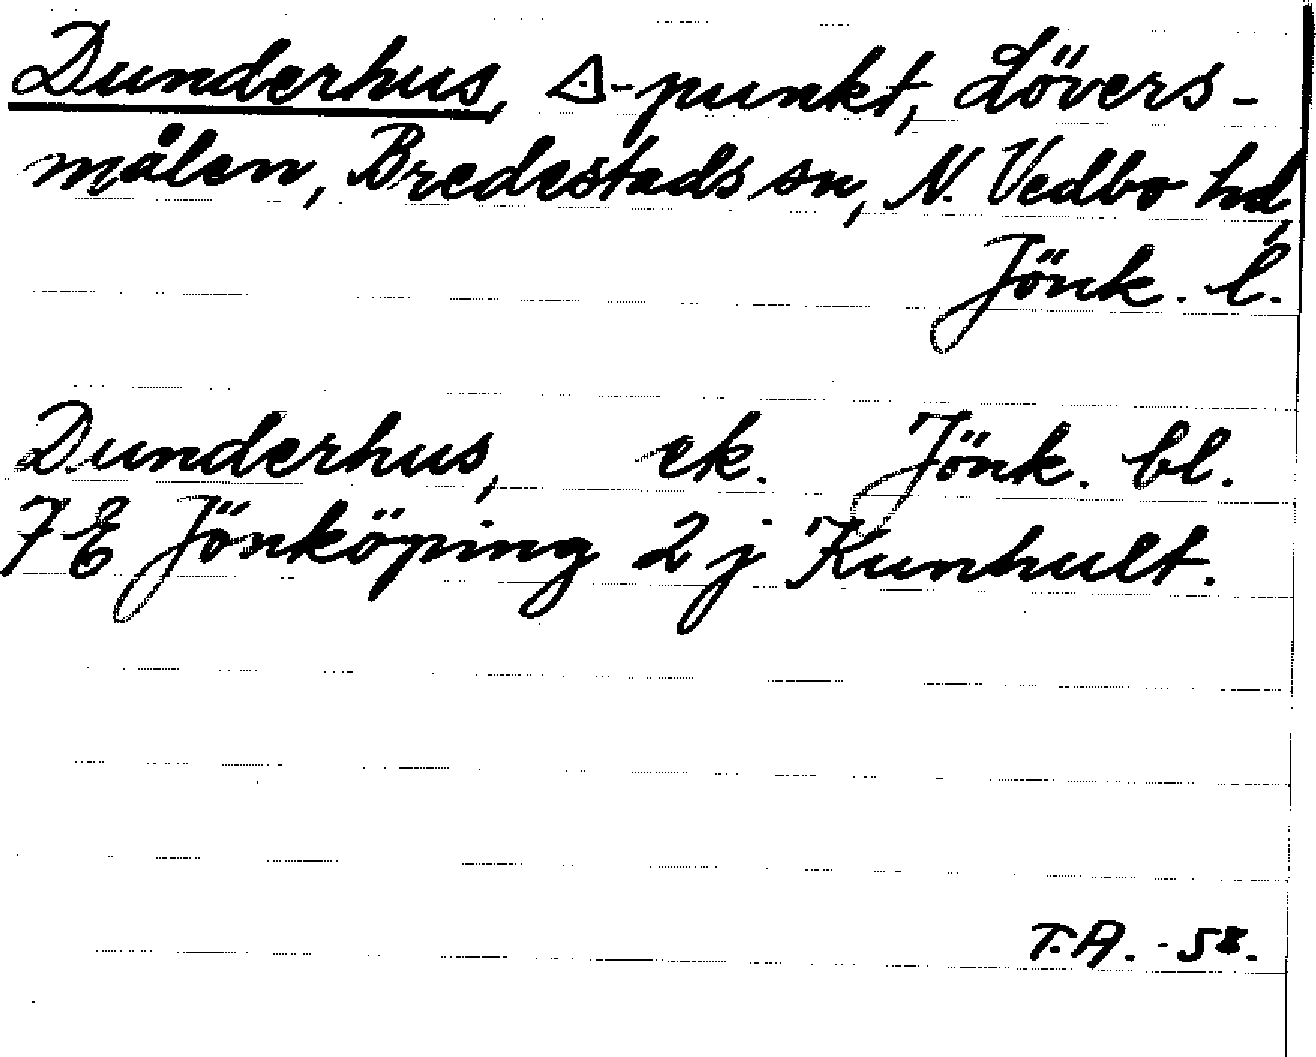 Dunderhus, △-punkt, Lövers-
målen, Bredestads sn, N. Vedbo hd,
Jönk. l.
Dunderhus, ek. Jönk. bl.
7 E Jönköping 2 j Kunhult.
T.A. -58.